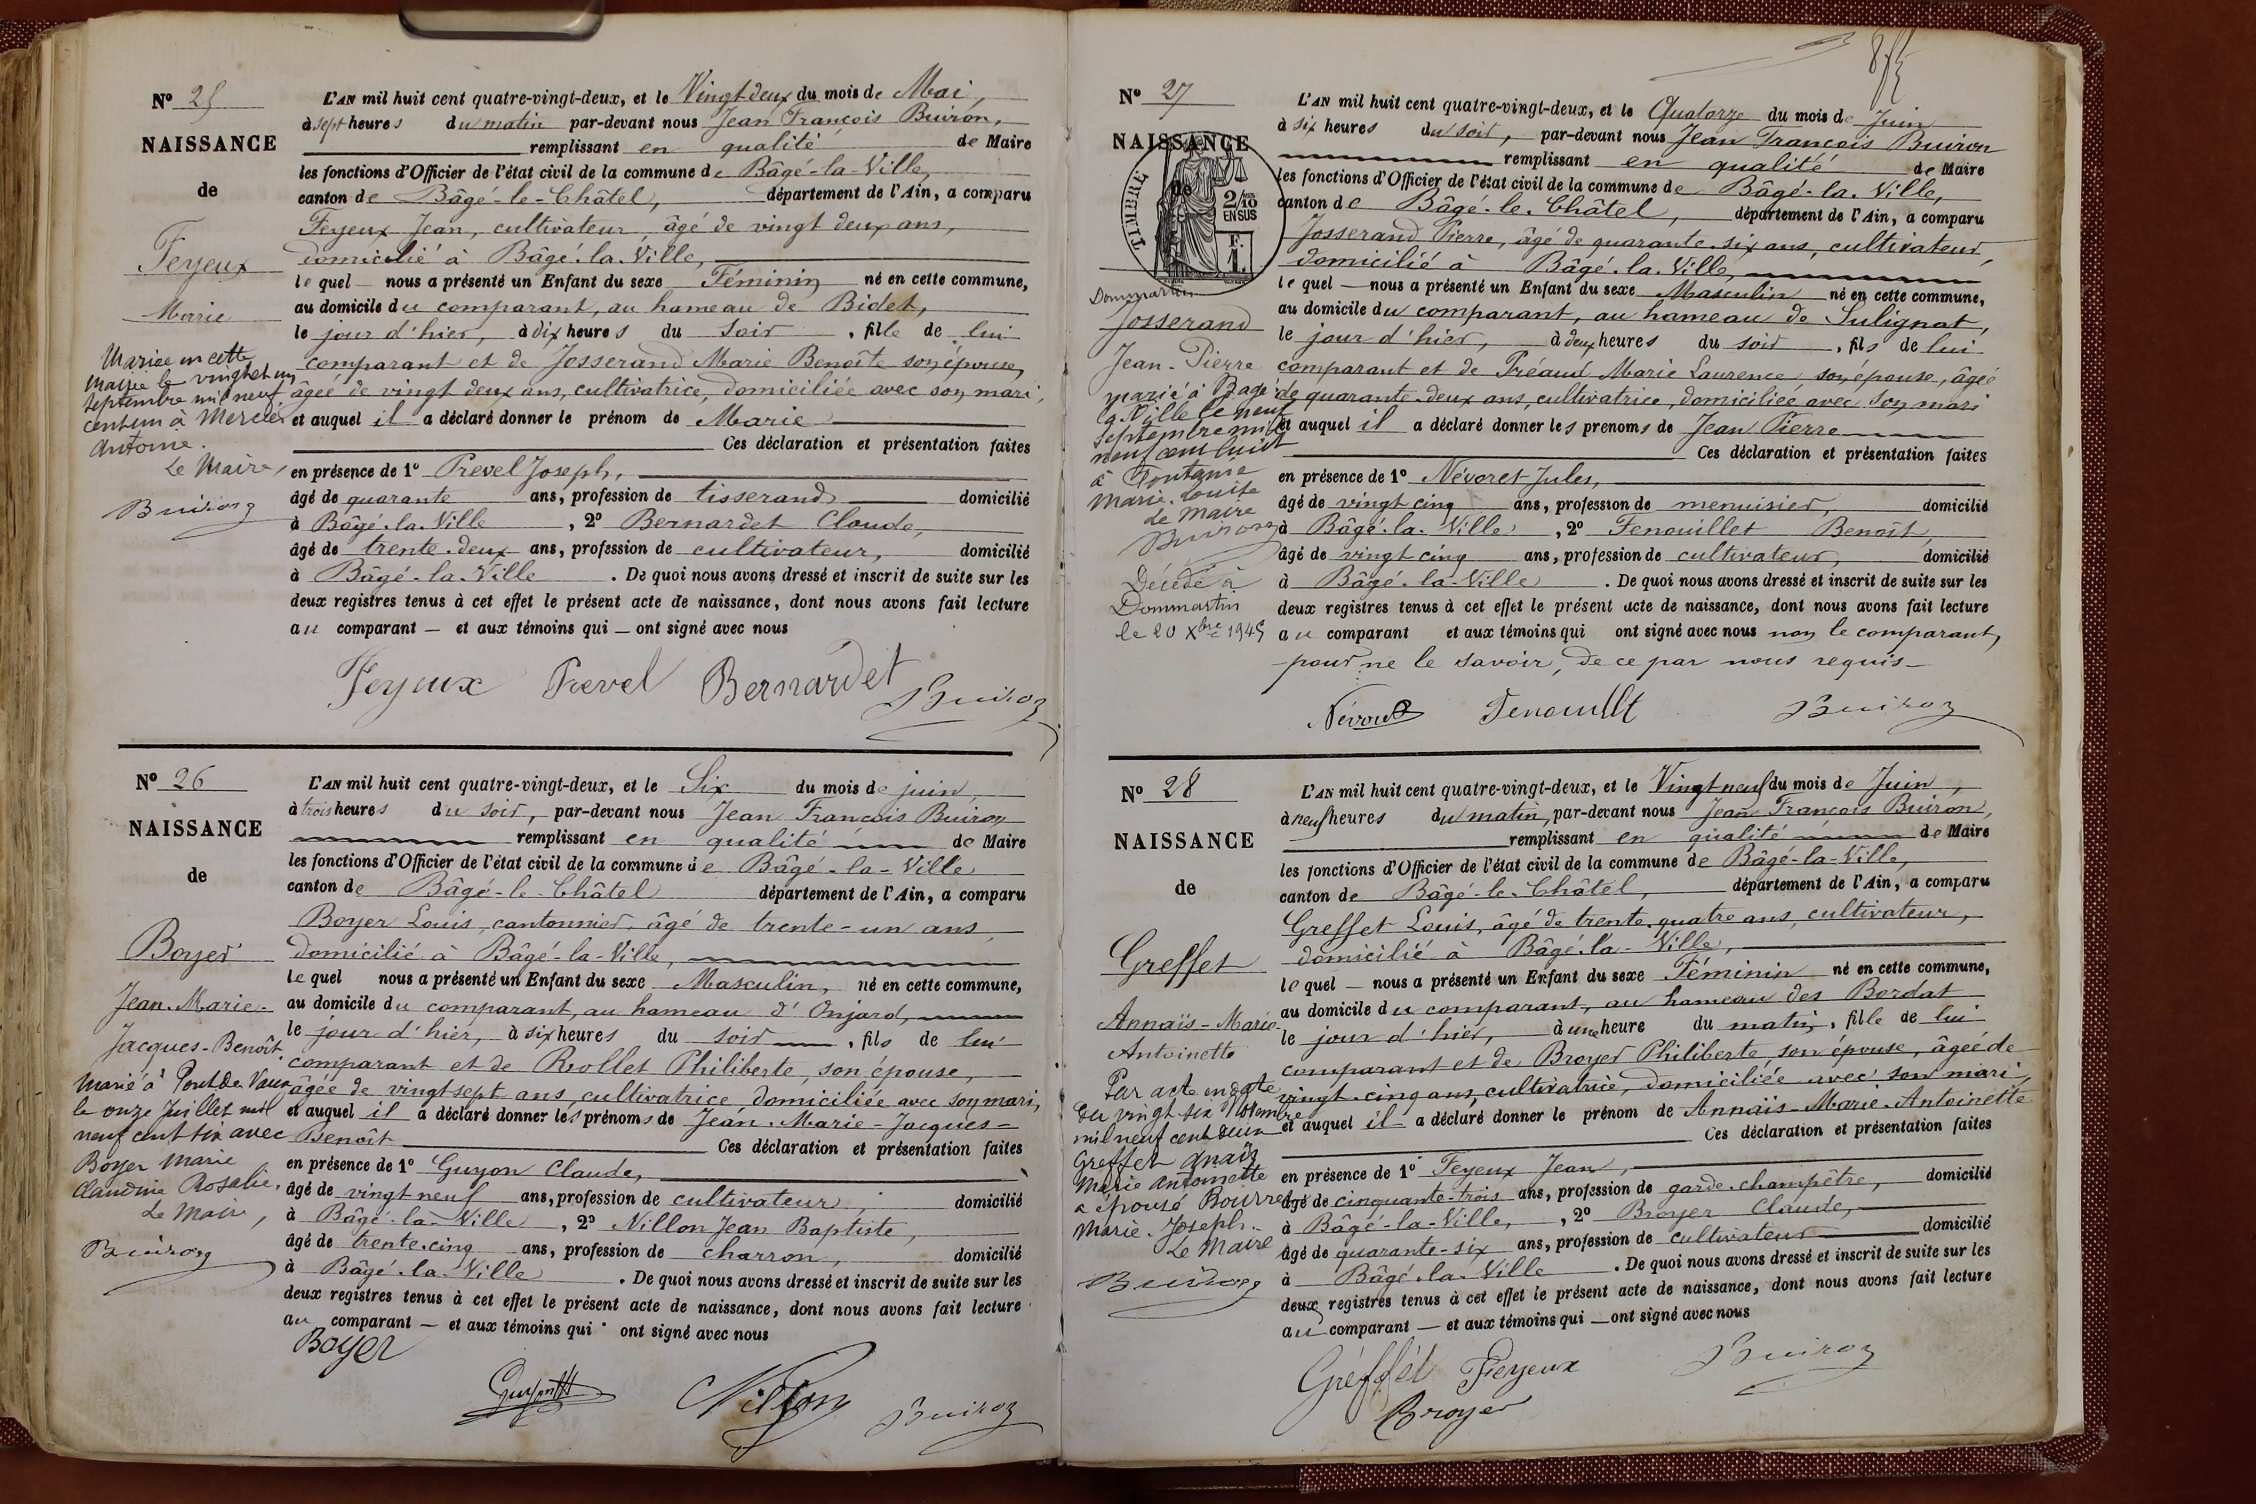 Nº 25
NAISSANCE
de
Feyeux
Marie
Mariée en cette
mairie le vingt et un
septembre mil neuf
cent un à Mercier
Antoine.
Le Maire,
Buiron
L'AN mil huit cent quatre-vingt-deux, et le Vingt deux du mois de Mai,
à sept heures du matin par-devant nous Jean François Buiron,
remplissant en qualité de Maire
les fonctions d'Officier de l'état civil de la commune de Bâgé-la-Ville,
canton de Bâgé-le-Châtel, département de l'Ain, a comparu
Feyeux Jean, cultivateur, âgé de vingt deux ans,
domicilié à Bâgé-la-Ville,
lequel nous a présenté un Enfant du sexe Féminin né en cette commune,
au domicile du comparant, au hameau de Bidet,
le jour d'hier, à dix heures du soir, fille de lui
comparant et de Josserand Marie Benoîte son épouse,
âgée de vingt deux ans, cultivatrice, domiciliée avec son mari,
et auquel il a déclaré donner le prénom de Marie
Ces déclaration et présentation faites
en présence de 1º Prevel Joseph,
âgé de quarante ans, profession de tisserand domicilié
à Bâgé-la-Ville, 2º Bernardet Claude,
âgé de trente-deux ans, profession de cultivateur, domicilié
à Bâgé-la-Ville. De quoi nous avons dressé et inscrit de suite sur les
deux registres tenus à cet effet le présent acte de naissance, dont nous avons fait lecture
au comparant — et aux témoins qui — ont signé avec nous
Feyeux Prevel Bernardet Buiron
Nº 26
NAISSANCE
de
Boyer
Jean-Marie-
Jacques-Benoît.
Marié à Pont de Vaux
le onze Juillet mil
neuf cent six avec
Boyer Marie
Claudine Rosalie.
Le Maire,
Buiron
L'AN mil huit cent quatre-vingt-deux, et le Six du mois de juin,
à trois heures du soir, par-devant nous Jean François Buiron
remplissant en qualité de Maire
les fonctions d'Officier de l'état civil de la commune de Bâgé-la-Ville
canton de Bâgé-le-Châtel département de l'Ain, a comparu
Boyer Louis, cantonnier, âgé de trente-un ans,
domicilié à Bâgé-la-Ville,
lequel nous a présenté un Enfant du sexe Masculin, né en cette commune,
au domicile du comparant, au hameau d'Onjard,
le jour d'hier, à six heures du soir, fils de lui
comparant et de Rollet Philiberte, son épouse,
âgée de vingt sept ans, cultivatrice domiciliée avec son mari,
et auquel il a déclaré donner les prénoms de Jean-Marie-Jacques-
Benoît Ces déclaration et présentation faites
en présence de 1º Guyon Claude,
âgé de vingt neuf ans, profession de cultivateur, domicilié
à Bâgé-la-Ville, 2º Nillon Jean Baptiste,
âgé de trente-cinq ans, profession de charron, domicilié
à Bâgé-la-Ville. De quoi nous avons dressé et inscrit de suite sur les
deux registres tenus à cet effet le présent acte de naissance, dont nous avons fait lecture
au comparant — et aux témoins qui ont signé avec nous
Boyer
Nillon Buiron
Nº 27
NAISSANCE
de
TIMBRE
2/10
EN SUS
F.
1.
Dommartin
Josserand
Jean-Pierre
marié à Bagé
la Ville le neuf
septembre mil
neuf cent huit
à Fontaine
Marie-Louise
Le Maire
Buiron
Décédé à
Dommartin
le 20 Xbre 1945
L'AN mil huit cent quatre-vingt-deux, et le Quatorze du mois de Juin
à six heures du soir, par-devant nous Jean François Buiron
remplissant en qualité de Maire
les fonctions d'Officier de l'état civil de la commune de Bâgé-la-Ville,
canton de Bâgé-le-Châtel, département de l'Ain, a comparu
Josserand Pierre, âgé de quarante-six ans, cultivateur,
domicilié à Bâgé-la-Ville,
lequel — nous a présenté un Enfant du sexe Masculin né en cette commune,
au domicile du comparant, au hameau de Sulignat,
le jour d'hier, à deux heures du soir, fils de lui
comparant et de Préaud Marie Laurence son épouse, âgée
de quarante-deux ans, cultivatrice, domiciliée avec son mari
et auquel il a déclaré donner les prenoms de Jean Pierre
Ces déclaration et présentation faites
en présence de 1º Névoret Jules,
âgé de vingt cinq ans, profession de menuisier, domicilié
à Bâgé-la-Ville, 2º Fenouillet Benoît,
âgé de vingt cinq ans, profession de cultivateur, domicilié
à Bâgé-la-Ville. De quoi nous avons dressé et inscrit de suite sur les
deux registres tenus à cet effet le présent acte de naissance, dont nous avons fait lecture
au comparant et aux témoins qui ont signé avec nous non le comparant,
pour ne le savoir, de ce par nous requis
Buiron
Nº 28
NAISSANCE
de
Greffet
Annaïs-Marie-
Antoinette
Par acte en date
du vingt six
mil neuf cent deux
Greffet Anaïs
Marie Antoinette
a épousé Bourret
Marie-Joseph.
Le Maire
Buiron
L'AN mil huit cent quatre-vingt-deux, et le Vingt neuf du mois de Juin,
à neuf heures du matin, par-devant nous Jean François Buiron,
remplissant en qualité de Maire
les fonctions d'Officier de l'état civil de la commune de Bâgé-la-Ville,
canton de Bâgé-le-Châtel, département de l'Ain, a comparu
Greffet Louis, âgé de trente-quatre ans, cultivateur,
domicilié à Bâgé-la-Ville,
lequel — nous a présenté un Enfant du sexe Féminin né en cette commune,
au domicile du comparant, au hameau des Bordat
le jour d'hier, à une heure du matin, fille de lui
comparant et de Broyer Philiberte, son épouse, âgée de
vingt-cinq ans, cultivatrice, domiciliée avec son mari,
et auquel il a déclaré donner le prénom de Annaïs-Marie-Antoinette
Ces déclaration et présentation faites
en présence de 1º Feyeux Jean,
âgé de cinquante-trois ans, profession de garde-champêtre, domicilié
à Bâgé-la-Ville, 2º Broyer Claude,
âgé de quarante-six ans, profession de cultivateur domicilié
à Bâgé-la-Ville. De quoi nous avons dressé et inscrit de suite sur les
deux registres tenus à cet effet le présent acte de naissance, dont nous avons fait lecture
au comparant — et aux témoins qui — ont signé avec nous
Gréffet Feyeux Buiron
Broyer